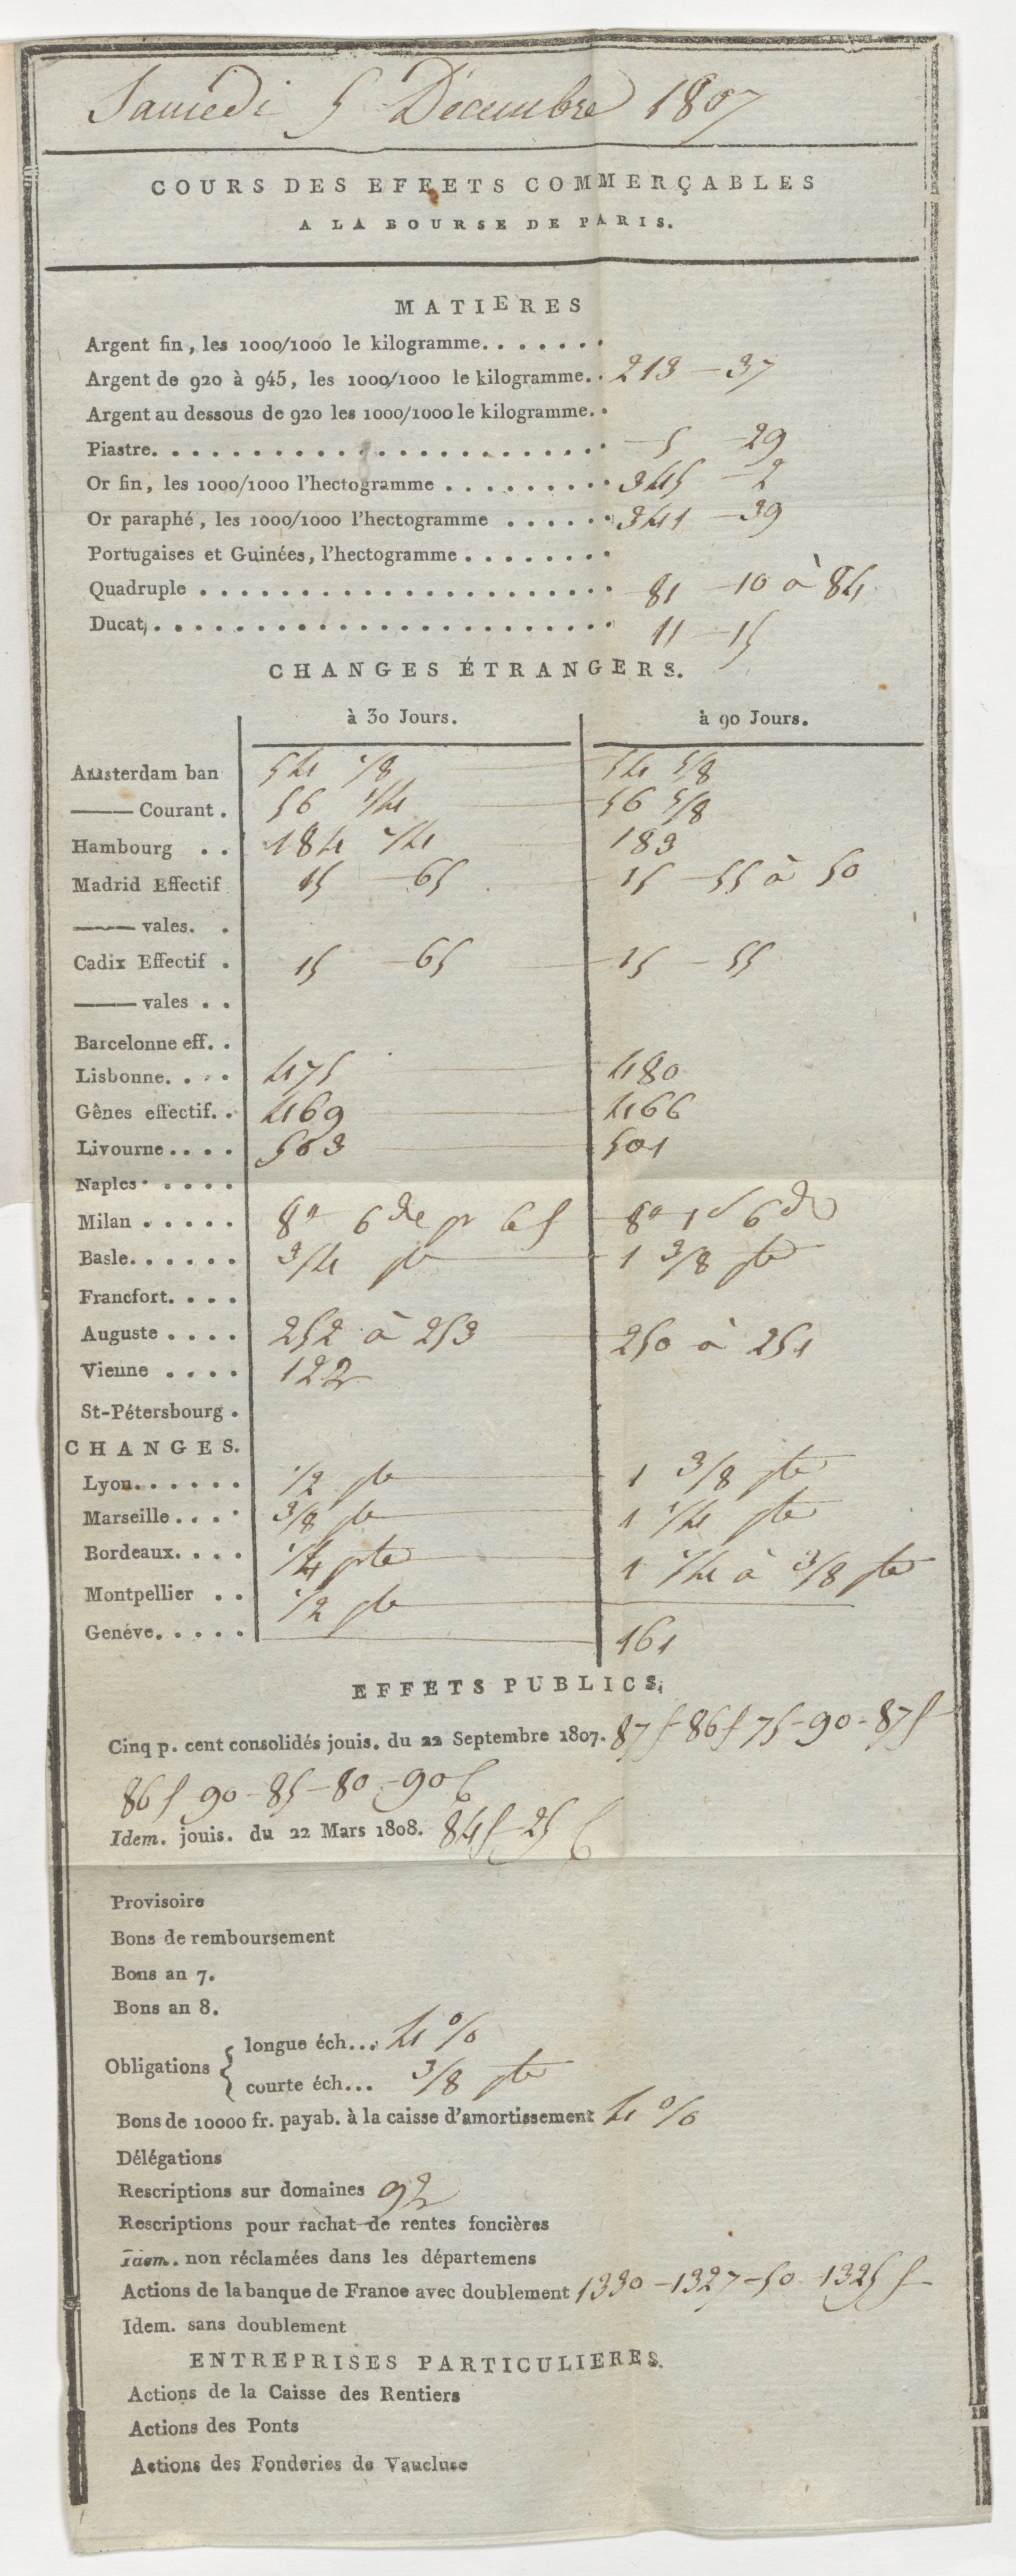 Samedi 5 Décembre 1807
COURS DES EFFETS COMMERÇABLES
A LA BOURSE DE PARIS.
MATIERES
Argent fin, les 1000/1000 le kilogramme.......
Argent de 920 à 945, les 1000/1000 le kilogramme.. 213 - 37
Argent au dessous de 920 les 1000/1000 le kilogramme..
Piastre....................... - 5 - 29
Or fin, les 1000/1000 l'hectogramme ......... 345 - 2
Or paraphé, les 1000/1000 l'hectogramme ...... 341 - 39
Portugaises et Guinées, l'hectogramme ........
Quadruple ...................... 81 - 10 à 84
Ducat, ....................... 11 - 15
CHANGES ÉTRANGERS.
à 30 Jours. à 90 Jours.
Amsterdam ban 54 1/8 54 5/8
—— Courant. 56 1/4 56 5/8
Hambourg .. 184 1/4 183
Madrid Effectif 15 - 65 15 - 55 à 50
—— vales. .
Cadix Effectif . 15 - 65 15 - 55
—— vales ..
Barcelonne eff. .
Lisbonne.... 475 480
Gênes effectif.. 469 466
Livourne.... 503 501
Naples.....
Milan ..... 8s 6de pr 6f 8s 1d 6de
Basle...... 3/4 pte 1 3/8 pte
Francfort....
Auguste .... 252 à 253 250 à 251
Vienne .... 122
St-Pétersbourg .
CHANGES.
Lyon...... 1/2 pte 1 3/8 pte
Marseille.... 3/8 pte 1 1/4 pte
Bordeaux.... 1/4 pte 1 1/4 à 3/8 pte
Montpellier .. 1/2 pte
Genéve..... 161
EFFETS PUBLICS.
Cinq p. cent consolidés jouis. du 22 Septembre 1807. 87f - 86f 75 - 90 - 87f
86f 90 - 85 - 80 - 90c
Idem. jouis. du 22 Mars 1808. 84f - 25c
Provisoire
Bons de remboursement
Bons an 7.
Bons an 8.
Obligations { longue éch... 4 %
courte éch... 3/8 pte
Bons de 10000 fr. payab. à la caisse d'amortissement 4 %
Délégations
Rescriptions sur domaines 92
Rescriptions pour rachat de rentes foncières
Idem. non réclamées dans les départemens
Actions de la banque de France avec doublement 1330 - 1327 - 50 - 1325f
Idem. sans doublement
ENTREPRISES PARTICULIERES.
Actions de la Caisse des Rentiers
Actions des Ponts
Actions des Fonderies de Vaucluse